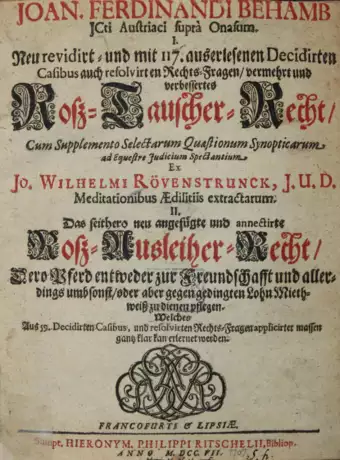 JOAN. FERDINANDI BEHAMB
JCti Austriaci suprà Onasum.
I.
Neu revidirt- und mit 117. auserlesenen Decidirten
Casibus auch resolvirten Rechts-Fragen/ vermehrt und
verbessertes
Roß-Tauscher-Recht/
Cum Supplemento Selectarum Quæstionum Synopticarum
ad Equestre Judicium Spectantium
Ex
JO. WILHELMI RÖVENSTRUNCK, J. U. D.
Meditationibus Ædilitiis extractarum.
II.
Das seithero neu angefügte und annectirte
Roß-Ausleiher-Recht/
Dero Pferd entweder zur Freundschafft und aller-
dings umbsonst/ oder aber gegen gedingten Lohn Mieth-
weiß zu dienen pflegen.
Welches
Aus 59. Decidirten Casibus, und resolvirten Rechts-Fragen applicirter massen
gantz klar kan erlernet werden.
FRANCOFURTI & LIPSIÆ,
Sumpt. HIERONYM. PHILIPPI RITSCHELII, Bibliop.
ANNO M. DCC. VII.